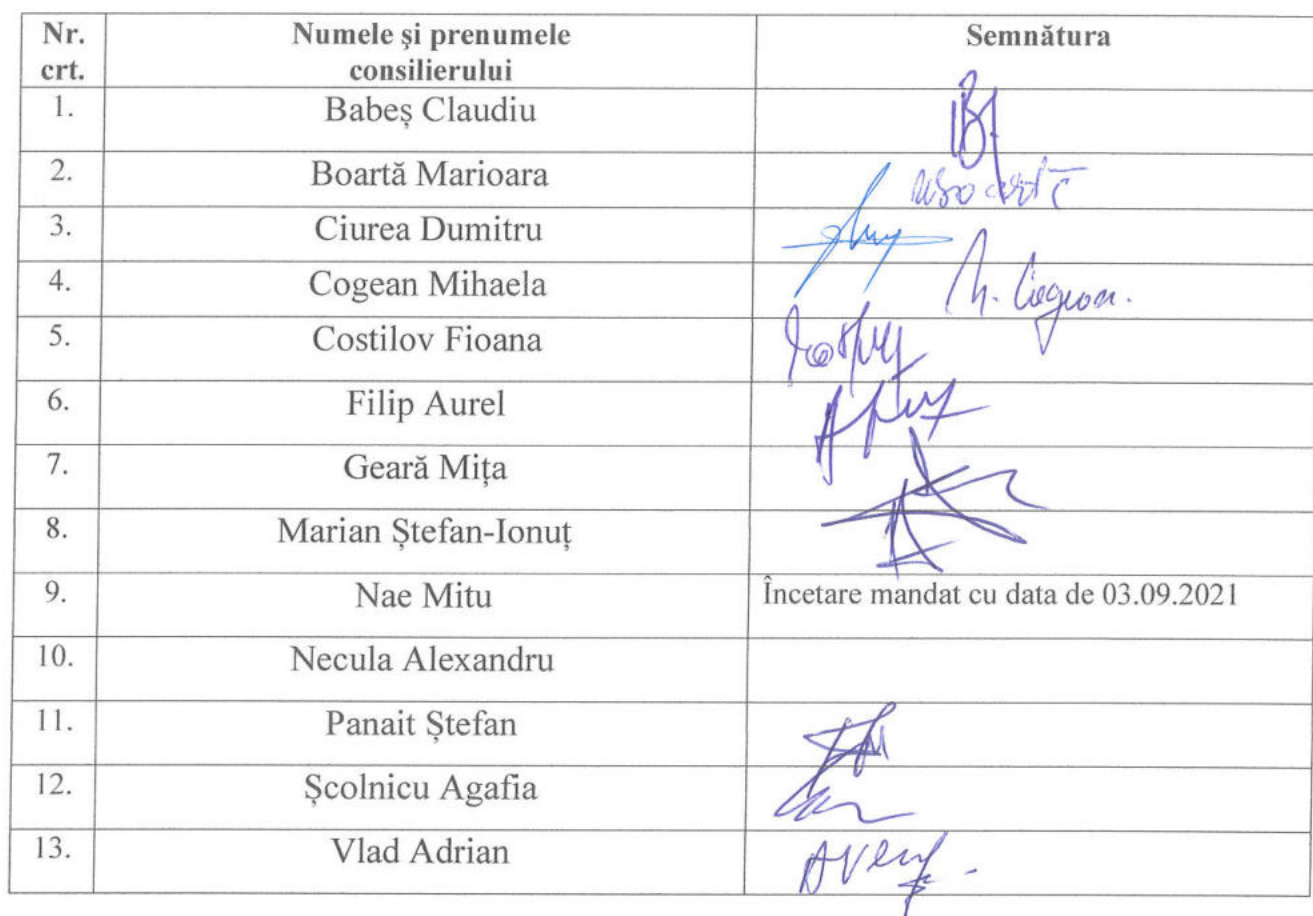 Nr. crt. Numele și prenumele consilierului Semnătura
1. Babeș Claudiu
2. Boartă Marioara
3. Ciurea Dumitru
4. Cogean Mihaela M. Cogean.
5. Costilov Fioana
6. Filip Aurel
7. Geară Mița
8. Marian Ștefan-Ionuț
9. Nae Mitu Încetare mandat cu data de 03.09.2021
10. Necula Alexandru
11. Panait Ștefan
12. Școlnicu Agafia
13. Vlad Adrian